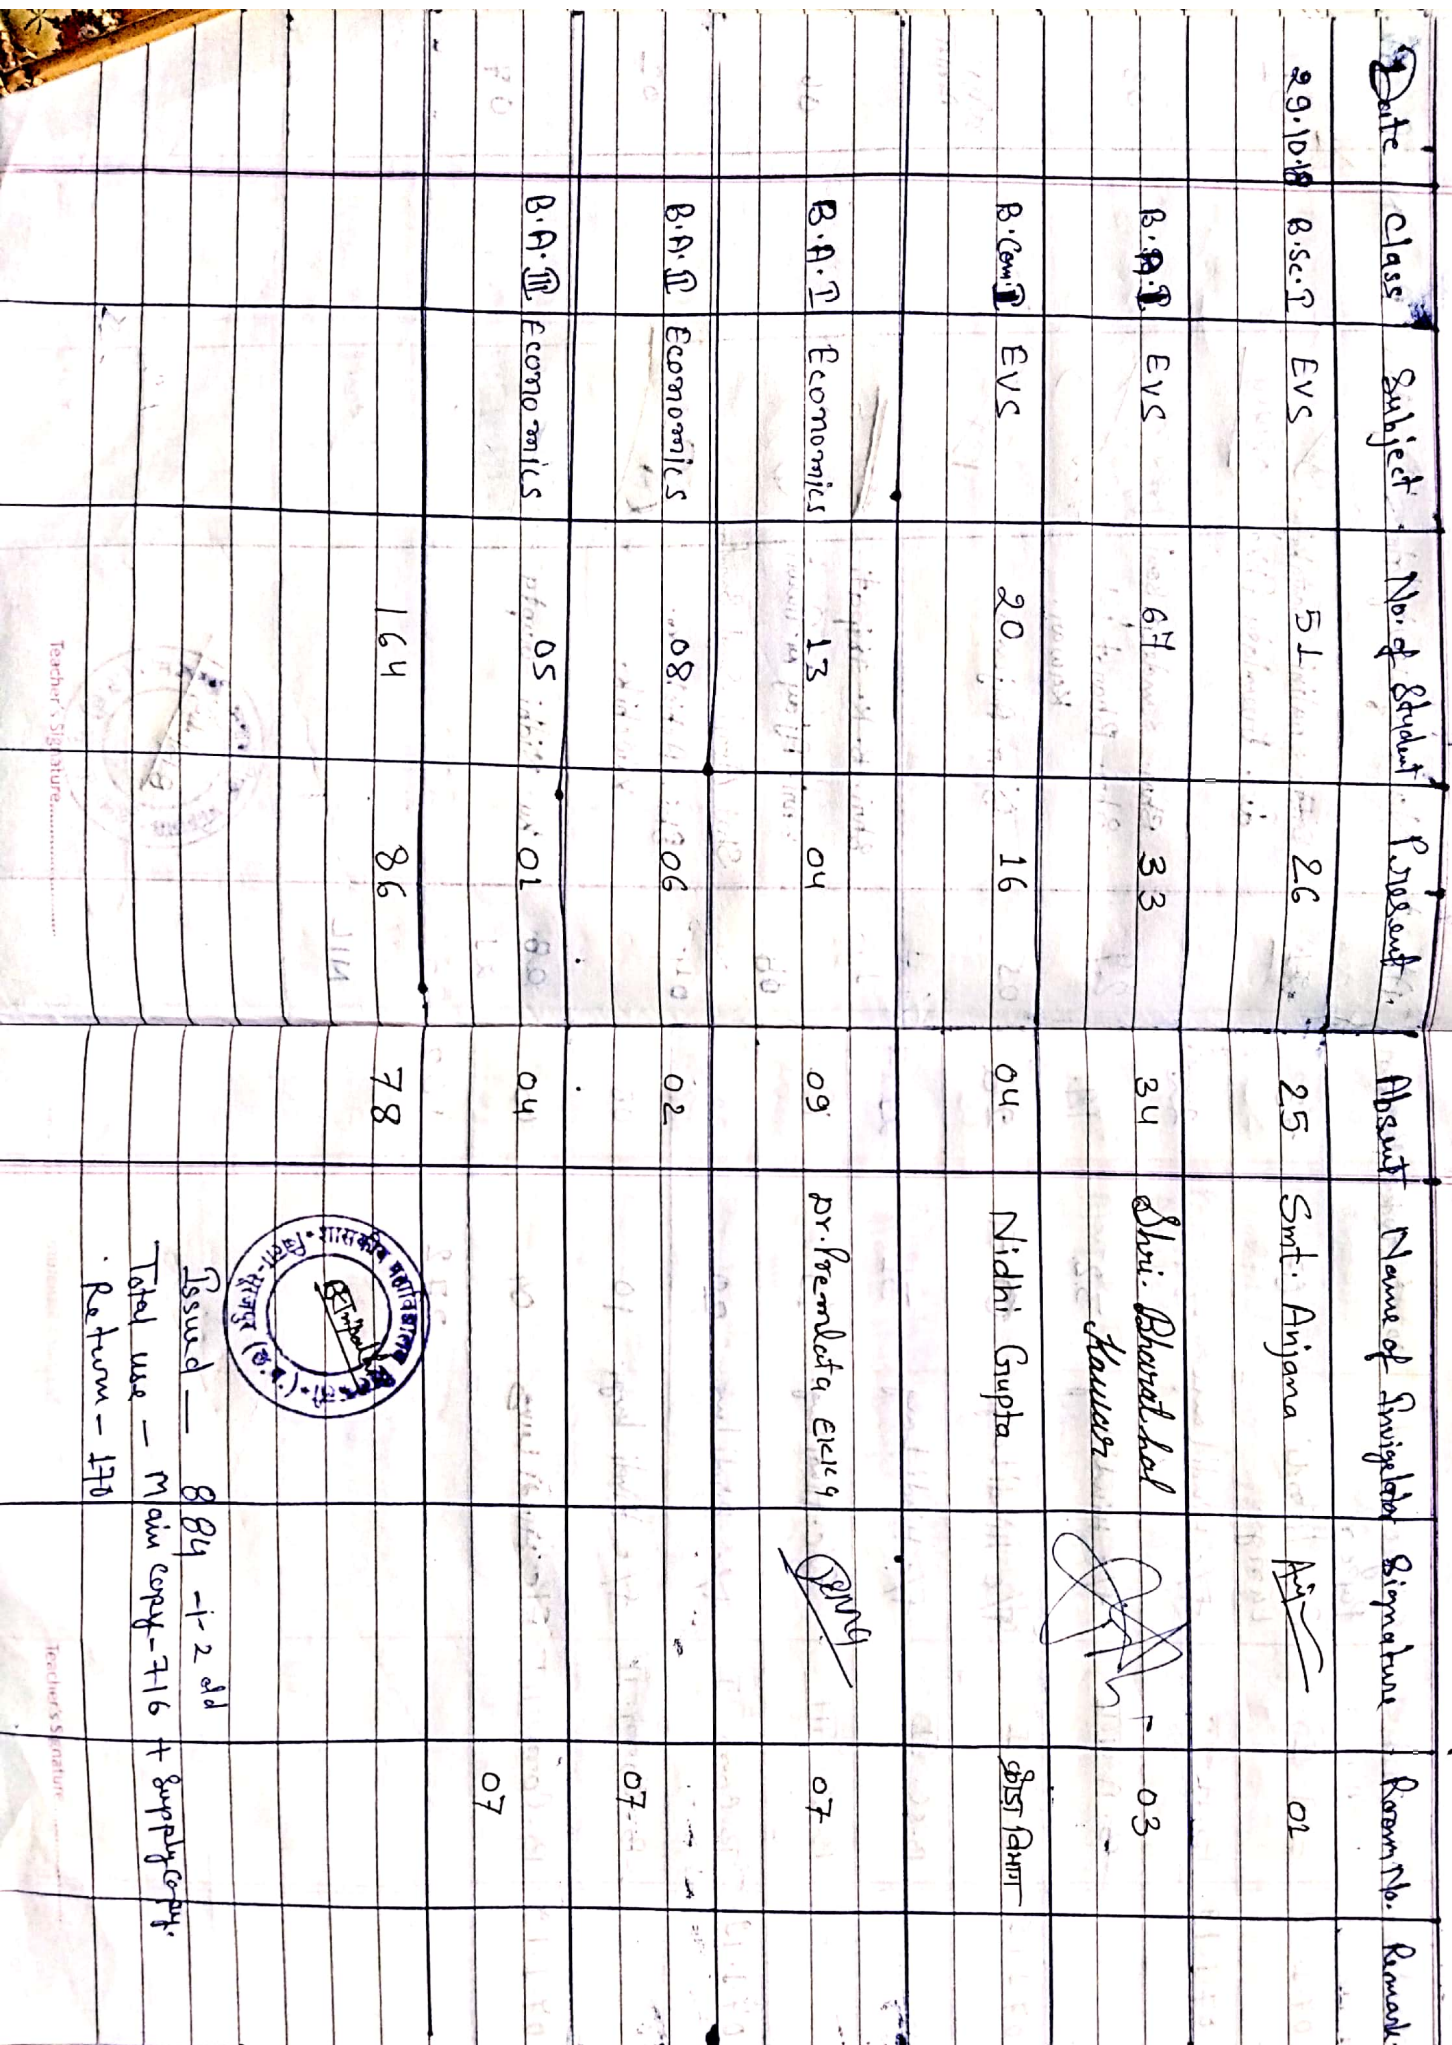 Date Class Subject No. of Student Present Absent Name of Invigelator Signature Room No. Remark
29.10.18 B.Sc.I EVS 51 26 25 Smt. Anjana 01
B.A.I EVS 67 33 34 Shri. Bharat lal Kanwar 03
B.Com.I EVS 20 16 04 Nidhi Gupta क्रीडा विभाग
B.A.I Economics 13 04 09 Dr. Premlata Ekka 07
B.A.II Economics 08 06 02 07
B.A.III Economics 05 01 04 07
164 86 78
शासकीय महाविद्यालय
जिला-सूरजपुर (छ.ग.)
Issued — 884 + 2 old
Total use — Main copy-716 + Supply copy.
Return - 170
Teacher's Signature
Teacher's Signature